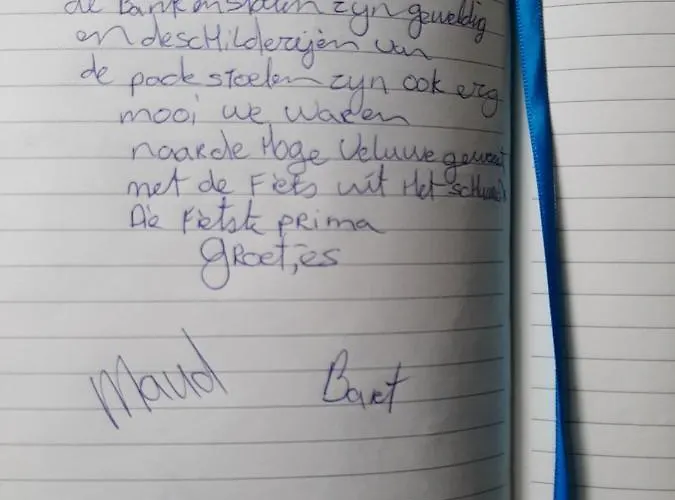 de Bank en stoelen zyn geweldig
en de schilderijen van
de pack stoelen zyn ook erg
mooi we waren
naar de Hoge Veluwe geweest
met de Fiets uit Het schuur
Die Fietste prima
groetjes
Maud Bart